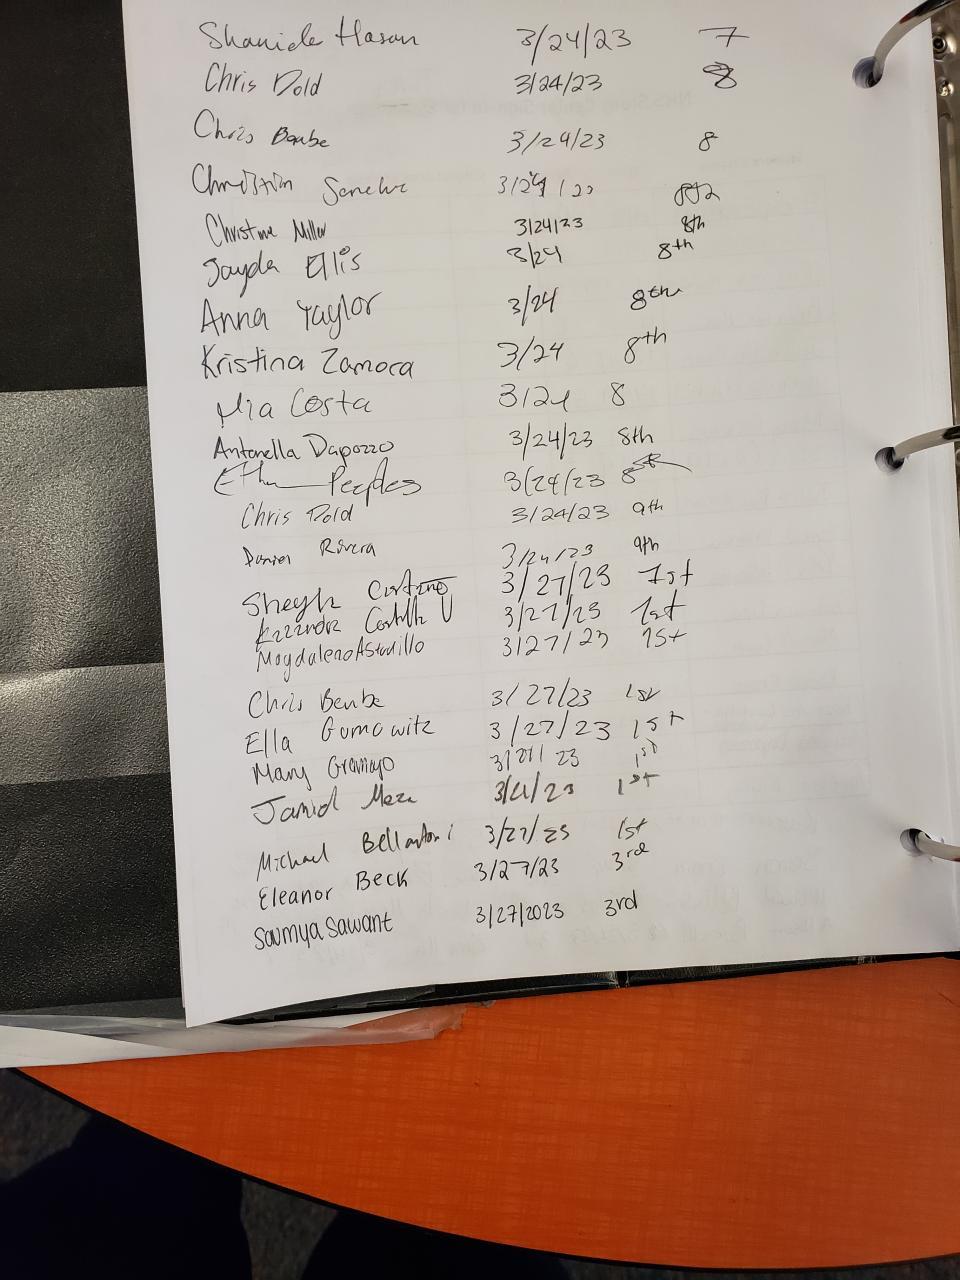 Hasan 3/24/23 7
Chris Dold 3/24/23 8
Chris Benbe 3/24/23 8
3/24/23
Christine Miller 3/24/23 8th
Jayda Ellis 3/24 8th
Anna Taylor 3/24 8th
Kristina Zamora 3/24 8th
Mia Costa 3/24 8
Antonella Dapozzo 3/24/23 8th
Ethan Peeples 3/24/23 8th
Chris Dold 3/24/23 9th
Rivera 3/24/23 9th
3/27/23 1st
3/27/23 1st
Magdaleno Astudillo 3/27/23 1st
Chris Benbe 3/27/23 1st
Ella Gumowitz 3/27/23 1st
Mary 3/27/23 1st
Meza 1st
Michael Bellantoni 3/27/23 1st
Eleanor Beck 3/27/23 3rd
Saumya Sawant 3/27/2023 3rd